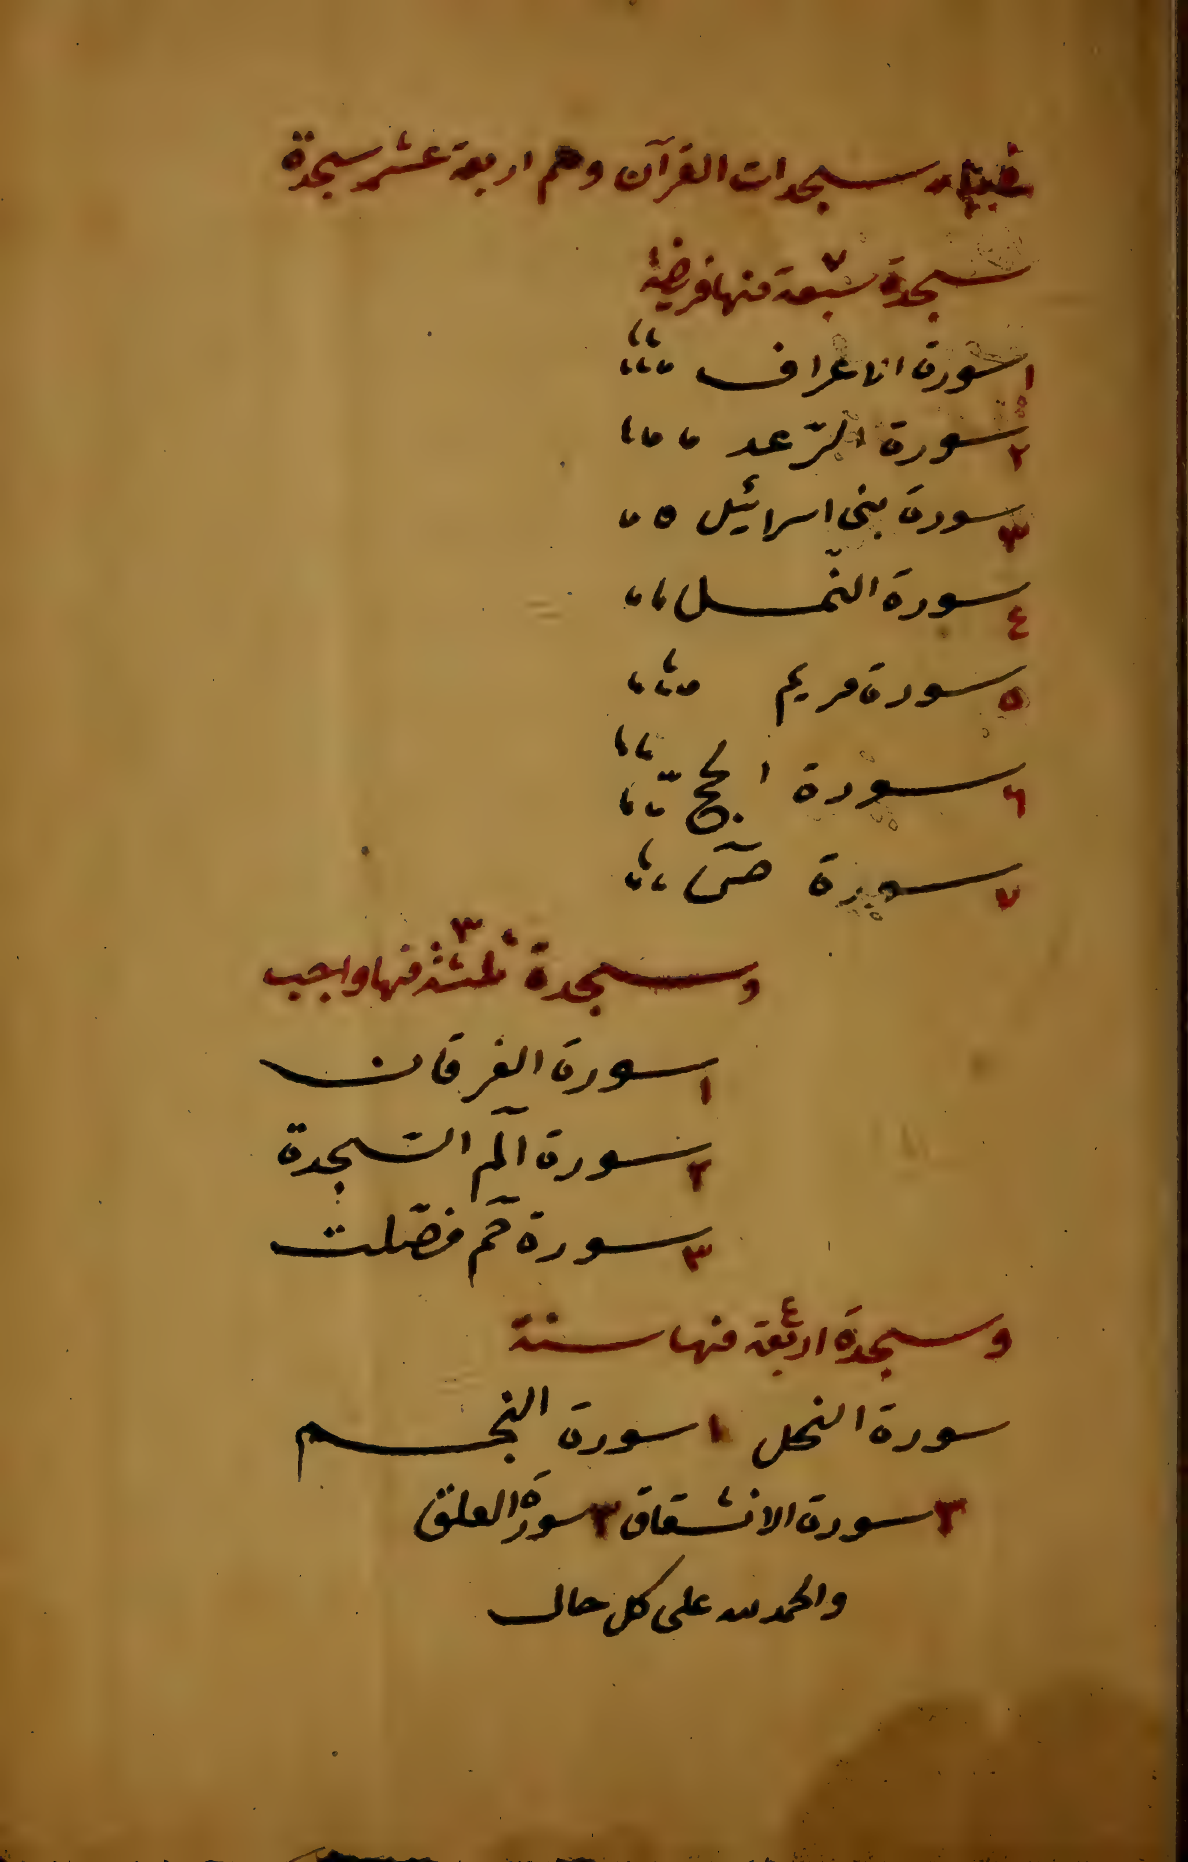 سجدات القرآن وهم اربعة عشر سجدة
سجدة سبعة ٧ منها فريضة
١ سورة الاعراف
٢ سورة الرّعد
٣ سورة بنی اسرائيل
٤ سورة النّمل
٥ سورة مريم
٦ سورة الحجّ
٧ سورة صٓ
وسجدة ثلثة ٣ منها واجب
١ سورة الفرقان
٢ سورة آلم السّجدة
٣ سورة حٓم فصّلت
وسجدة اربعة ٤ منها سنة
سورة النحل ١ سورة النجم
٣ سورة الانشقاق ٢ سورة العلق
والحمد لله على كل حال